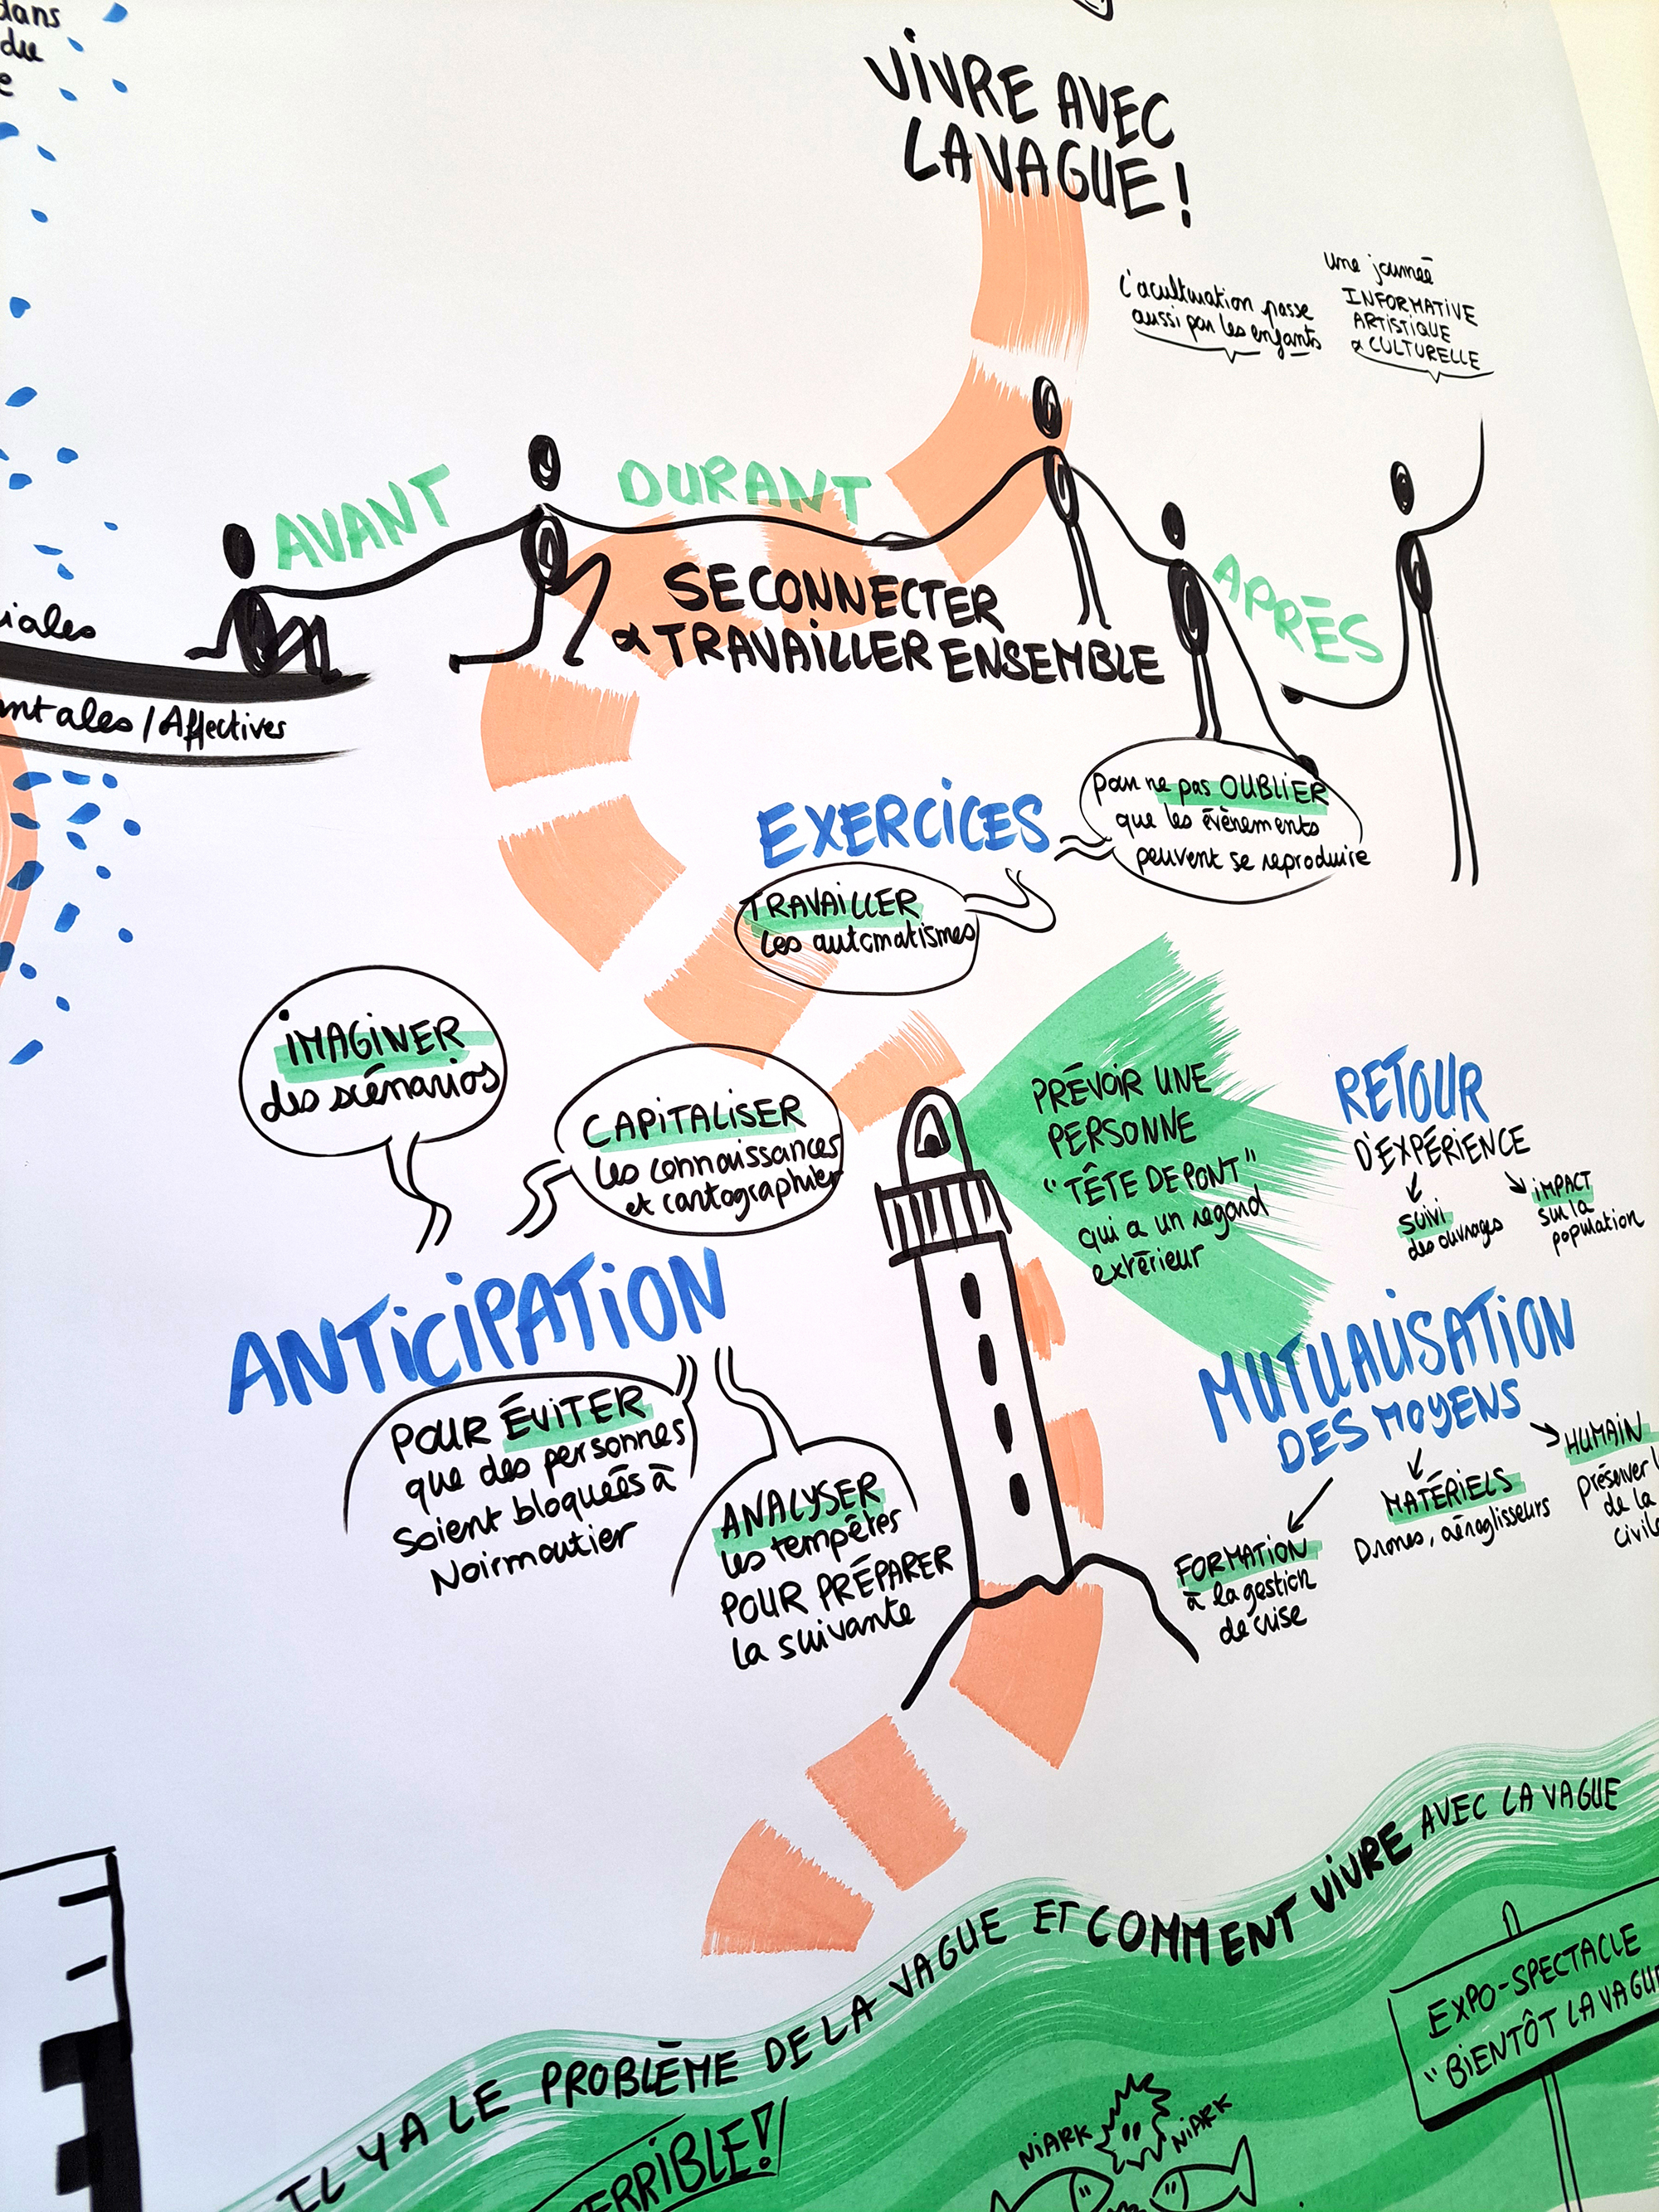 dans
du
VIVRE AVEC
LA VAGUE !
L'aculturation passe
aussi par les enfants
une journée
INFORMATIVE
ARTISTIQUE
& CULTURELLE
AVANT
DURANT
APRÈS
SE CONNECTER
& TRAVAILLER ENSEMBLE
iales
ntales / Affectives
EXERCICES
pour ne pas OUBLIER
que les évènements
peuvent se reproduire
TRAVAILLER
les automatismes
IMAGINER
des scénarios
CAPITALISER
les connaissances
et cartographier
PRÉVOIR UNE
PERSONNE
"TÊTE DE PONT"
qui a un regard
extérieur
RETOUR
D'EXPÉRIENCE
SUIVI
des ouvrages
IMPACT
sur la
population
ANTICIPATION
POUR ÉVITER
que des personnes
soient bloquées à
Noirmoutier
ANALYSER
les tempêtes
POUR PRÉPARER
la suivante
MUTUALISATION
DES MOYENS
FORMATION
à la gestion
de crise
MATÉRIELS
Drones, aéroglisseurs
HUMAIN
préserver
de la
civile
IL Y A LE PROBLÈME DE LA VAGUE ET COMMENT VIVRE AVEC LA VAGUE
TERRIBLE !
NIARK
NIARK
EXPO-SPECTACLE
"BIENTÔT LA VAGUE